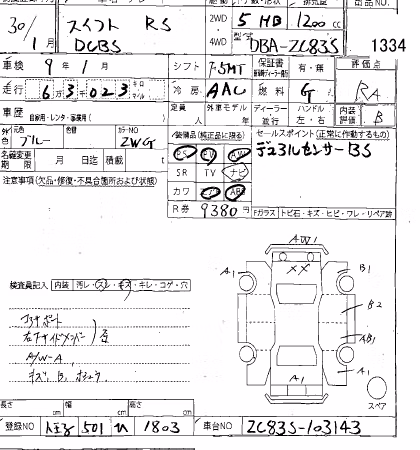 30/1月 スイフト RS DCBS
2WD 4WD
5 HB 1200 cc
型式 DBA-ZC83S
1334
車検 9年1月
シフト F5MT
保証書 有・無
評価点 RA
走行 63023
冷房 AAC
燃料 G
内装評価 B
車歴 自家用・レンタ・事業用( )
定員 人
外車モデル 年
ディーラー 並行
ハンドル 左・右
外色 元色 ブルー 色替 カラーNO ZWG
装備品(純正品に限る)
セールスポイント(正常に作動するもの)
デュアルセンサーBS
PS PW AW
SR TV ナビ
カワ エアB ABS
名義変更期限 月 日迄 積載 t
R券 9380円
注意事項(欠品・修復・不具合箇所および状態)
Fガラス トビ石・キズ・ヒビ・ワレ・リペア跡
AW1
A1 XX B1
B2
AB1
A1 A1
スペア
検査員記入 内装 汚レ・スレ・キズ・キレ・コゲ・穴
右サイドメンバー
A/W-A
キズ、B、
長さ cm 幅 cm 高さ cm
登録NO 501 1803
車台NO ZC83S-103143